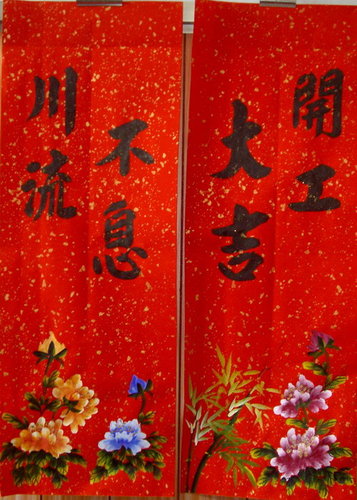 開工
大吉
川流
不息